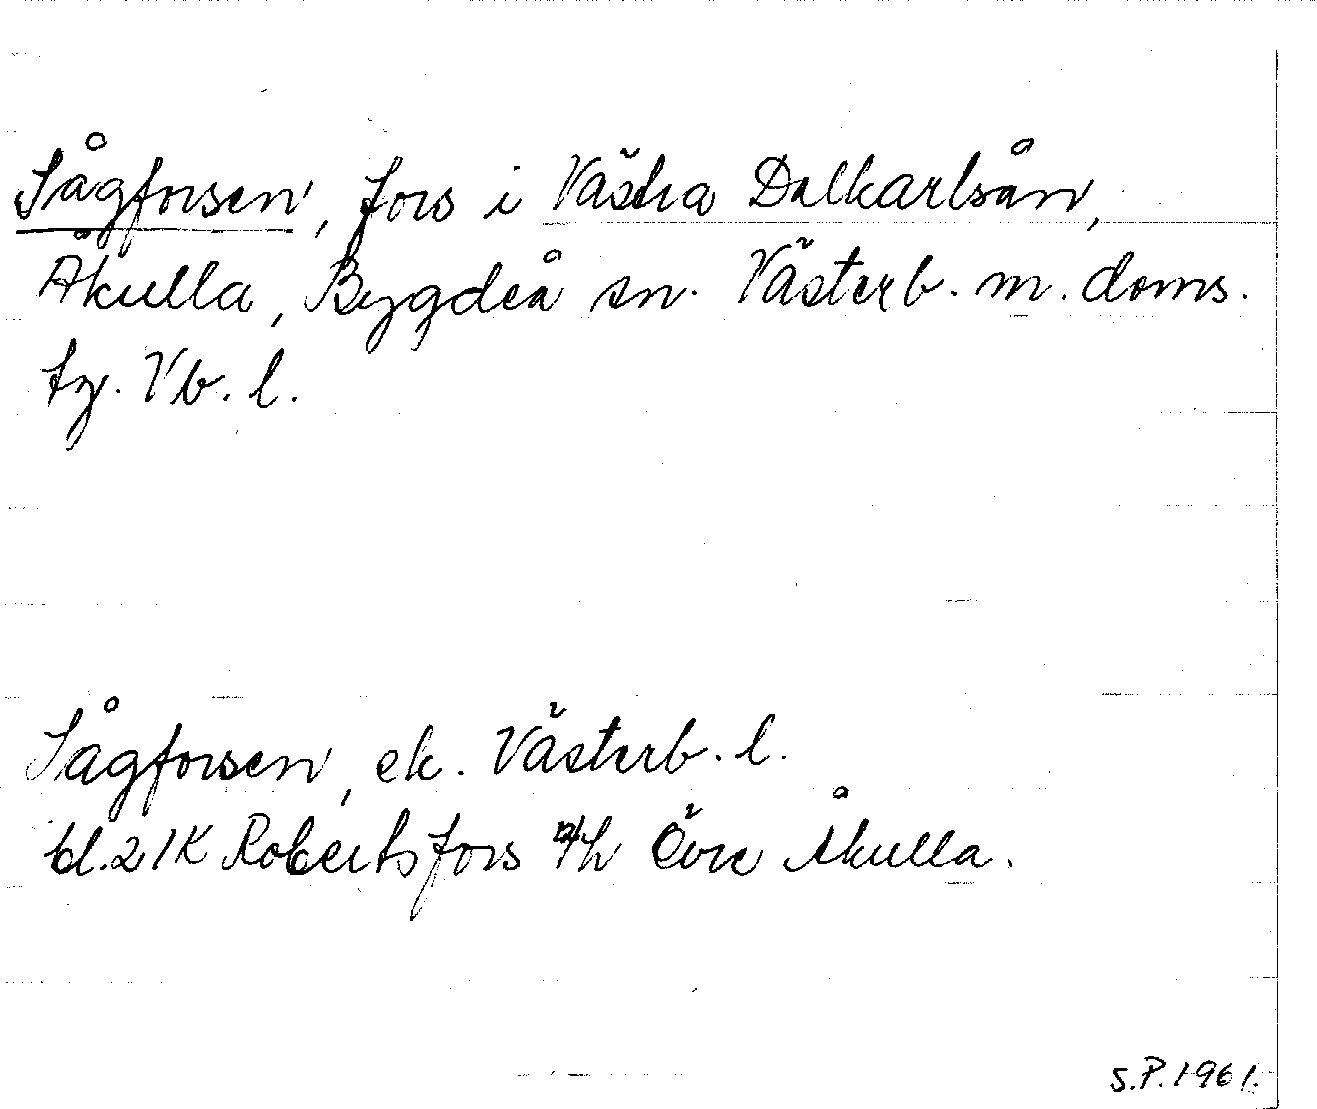 Sågforsen, fors i Västra Dalkarlsån,
Åkulla, Bygdeå sn. Västerb. m. doms.
tg. Vb. l.
Sågforsen, ek. Västerb. l.
bl. 21K Robertsfors Övre Åkulla.
S.P. 1961.